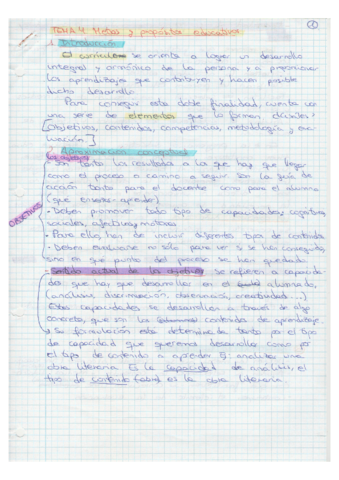 1
TEMA 4. Metas y propósito educativo
1. Introducción
El currículo se orienta a lograr un desarrollo
integral y armónico de la persona y a proporcionar
los aprendizajes que contribuyen y hacen posible
dicho desarrollo.
Para conseguir esta doble finalidad, cuenta con
una serie de elementos que lo forman
[objetivos, contenidos, competencias, metodología y eva-
luación]
2. Aproximación conceptual
Los objetivos
Son tanto los resultados a los que hay que llegar
como el proceso o camino a seguir. Son la guía de
acción tanto para el docente como para el alumno
(que enseñar-aprender)
OBJETIVOS
• Deben promover todo tipo de capacidades: cognitivas,
sociales, afectivas y motoras
• Para ello, han de incluir diferentes tipos de contenido.
• Deben evaluarse no sólo para ver si se han conseguido,
sino en que punto del proceso se han quedado.
• Sentido actual de los objetivos: se refieren a capacida-
des que hay que desarrollar en el alumnado,
(análisis, discriminación, observación, creatividad...)
Estas capacidades se desarrollan a través de algo
concreto, que son los contenidos de aprendizaje
y su formulación está determinada tanto por el tipo
de capacidad que queremos desarrollar como por
el tipo de contenido a aprender. Ej: analizar una
obra literaria. Es la capacidad de análisis, el
tipo de contenido es la obra literaria.